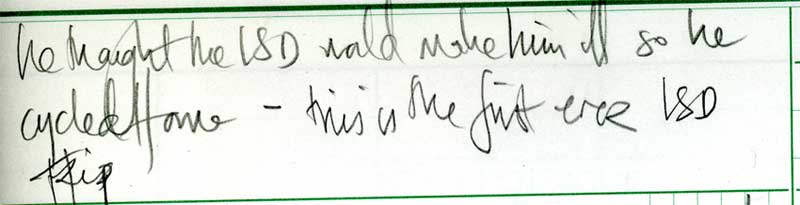 he thought the LSD would make him ill so he
cycled home - this is the first ever LSD
trip